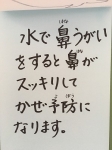 水で鼻うがい
をすると鼻が
スッキリして
かぜ予防に
なります。